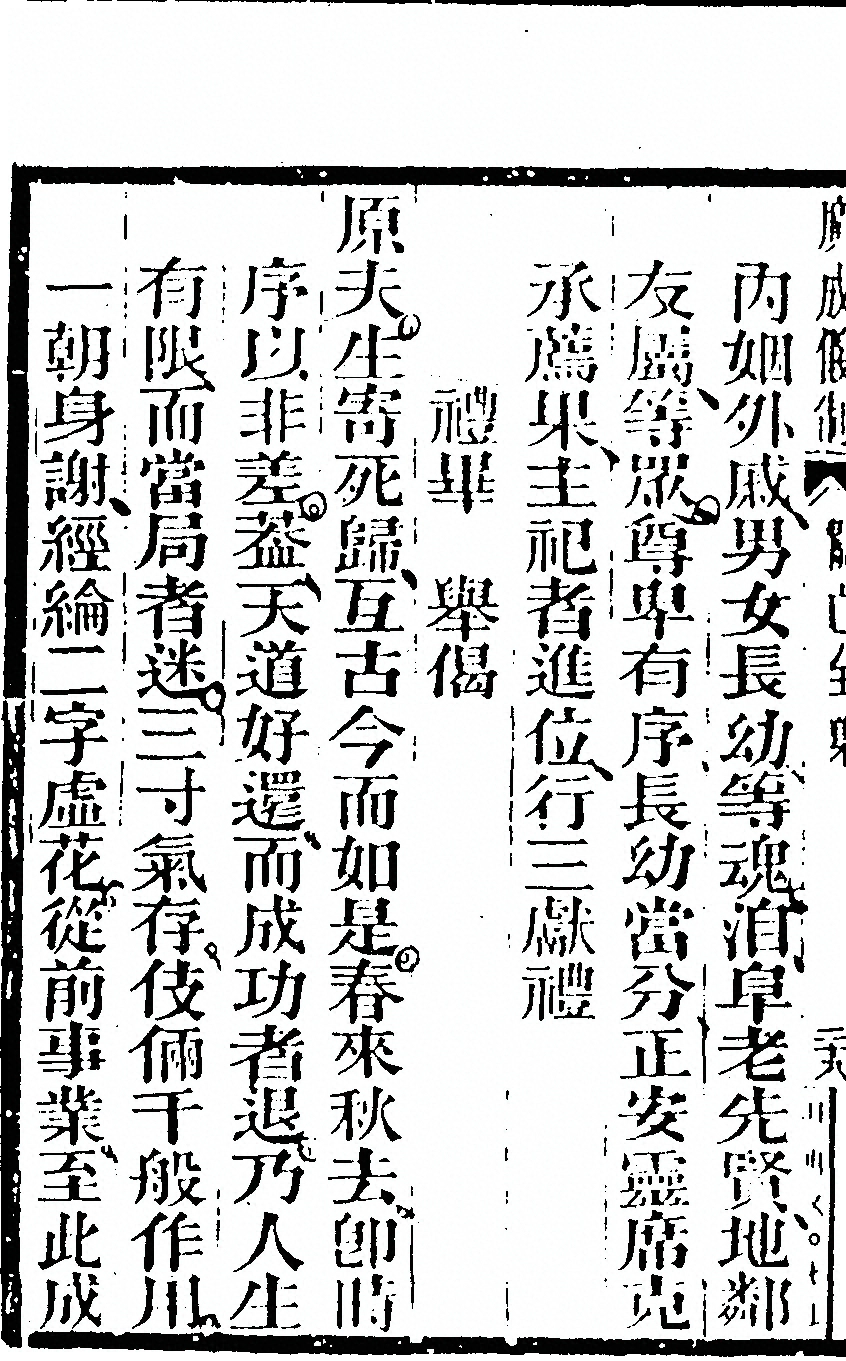 內姻外戚男女長幼等魂洎阜老先賢地鄰
友屬等眾尊卑有序長幼當分正安靈席克
承薦果主祀者進位行三獻禮
禮畢　舉偈
原夫生寄死歸互古今而如是春來秋去卽時
序以非差葢天道好還而成功者退乃人生
有限而當局者迷三寸氣存伎倆千般作用
一朝身謝經綸二字虛花從前事業至此成